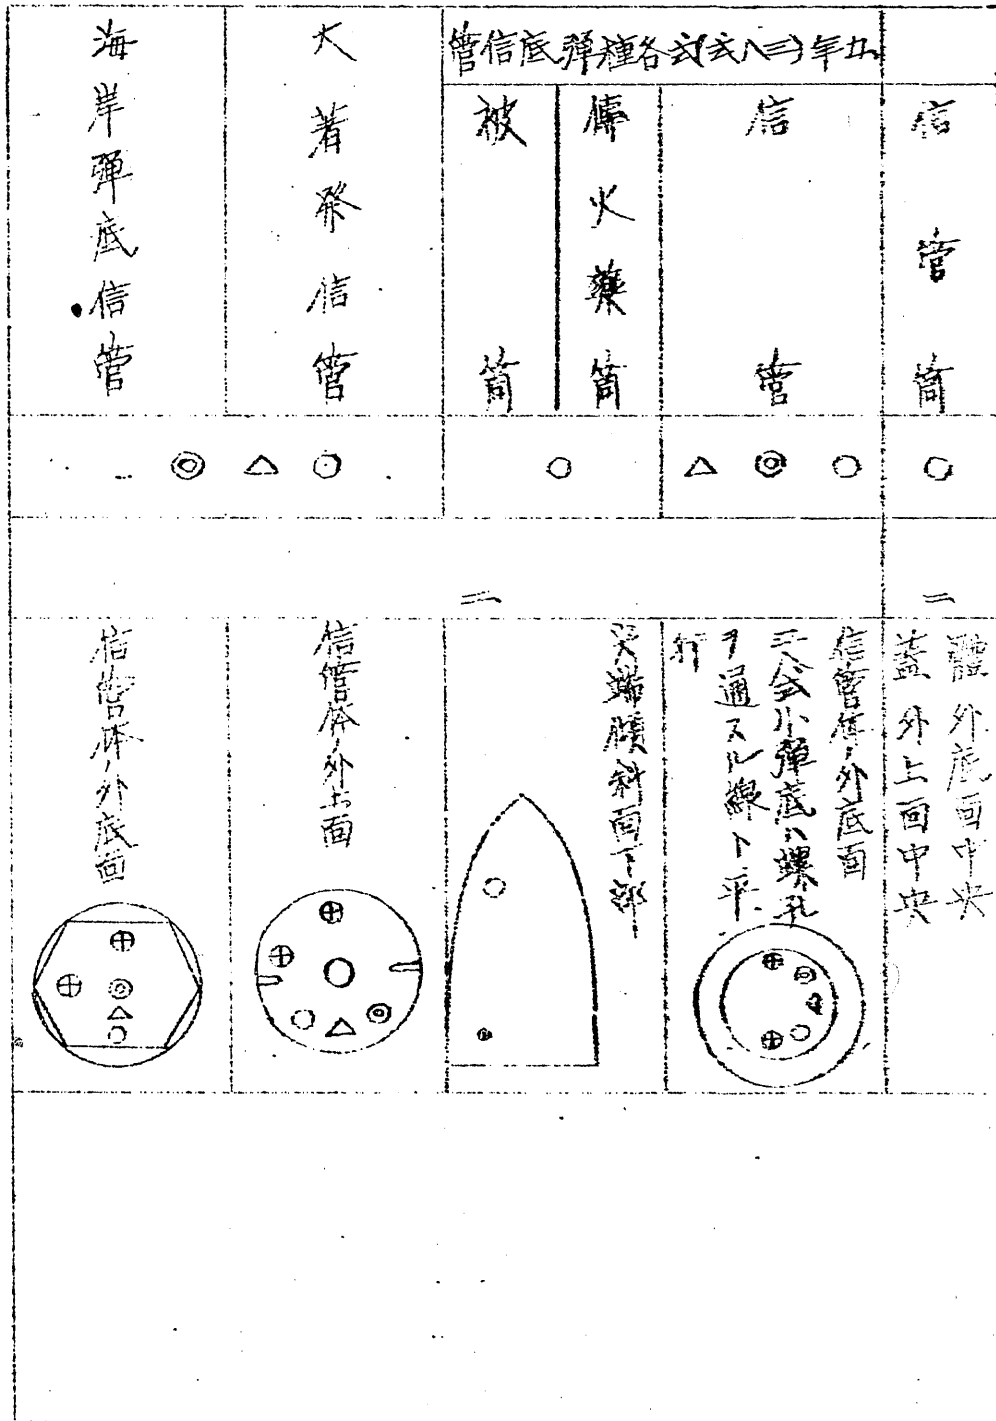 信管筒
○
二
體外底面中央
蓋外上面中央
九年式(三八式)各種弾底信管
信管
○ ◎ △
信管体ノ外底面
三八式小弾底ハ螺孔
ヲ通スル線ト平
行
傳火藥筒
被筒
○
二
尖端傾斜面下部
大着発信管
○ △ ◎
信管体ノ外上面
海岸弾底信管
信管体ノ外底面